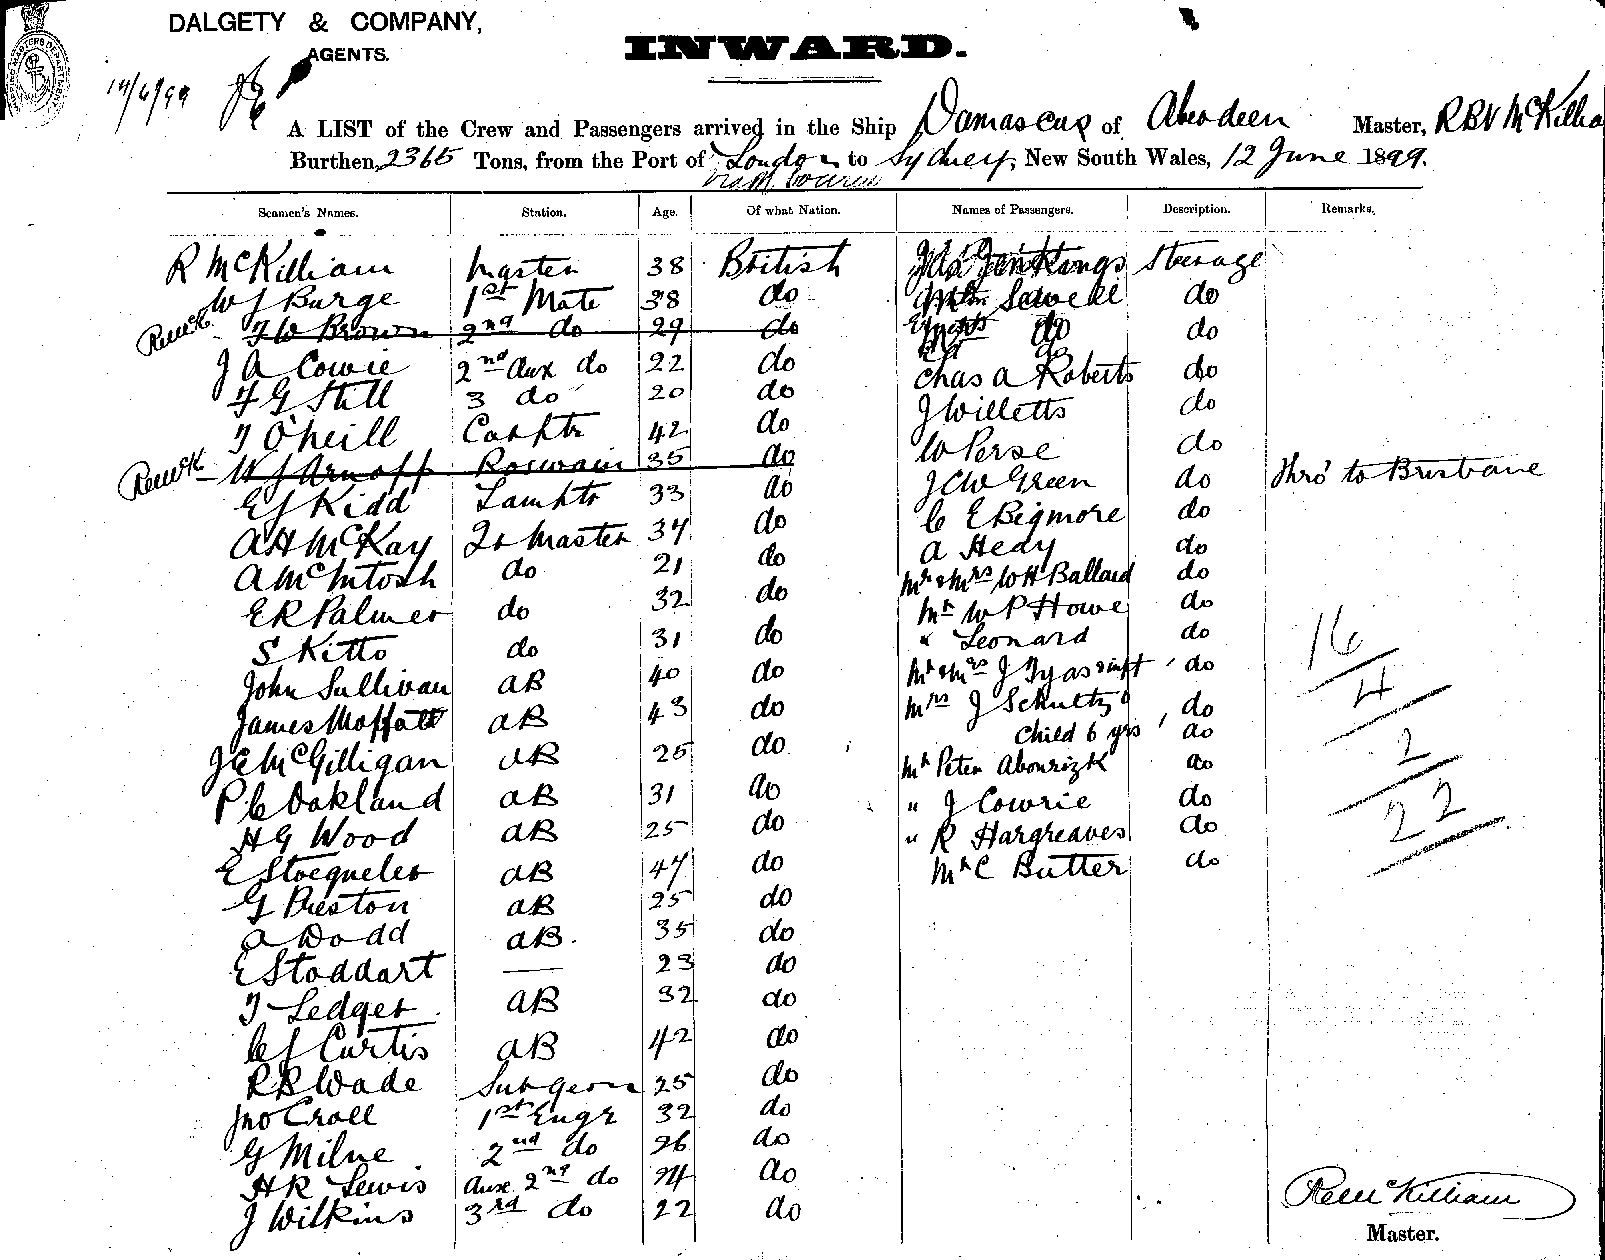 DALGETY & COMPANY,
AGENTS.
INWARD.
14/6/99
A LIST of the Crew and Passengers arrived in the Ship Damascus of Aberdeen Master, RBN McKillia
Burthen, 2365 Tons, from the Port of London to Sydney, New South Wales, 12 June 1899.
via Melbourne
Seamen's Names. Station. Age. Of what Nation. Names of Passengers. Description. Remarks.
R McKilliam Master 38 British Jenkings Steerage
W J Burge 1st Mate 38 do Sewell do
T W Brown 2nd do 29 do do do
J A Cowie 2nd Aux do 22 do Chas A Roberts do
F G Still 3 do 20 do J Willetts do
T O'Neill Carptr 42 do W Perse do
W J Arnoff Boswain 35 do J C W Green do Thro' to Brisbane
E J Kidd Lamptr 33 do C E Bigmore do
A H McKay Qr Master 34 do A Hedy do
A McIntosh do 21 do Mr & Mrs W H Ballard do
E R Palmer do 32 do Mr W P Howe do
S Kitto do 31 do " Leonard do
John Sullivan AB 40 do Mr & Mrs J Tyas & inft do
James Moffatt AB 43 do Mrs J Schultz & do
Child 6 yrs do
J E McGilligan AB 25 do Mr Peter Abourizk do
P C Oakland AB 31 do " J Cowrie do
H G Wood AB 25 do " R Hargreaves do
E Stocqueler AB 47 do Mr C Butter do
G Preston AB 25 do
A Dodd AB. 35 do
E Stoddart — 23 do
T Ledger AB 32 do
C J Curtis AB 42 do
R B Wade Surgeon 25 do
Jno Croll 1st Engr 32 do
G Milne 2nd do 26 do
H R Lewis Aux 2nd do 24 do
J Wilkins 3rd do 22 do
16
4
2
22
McKilliam
Master.